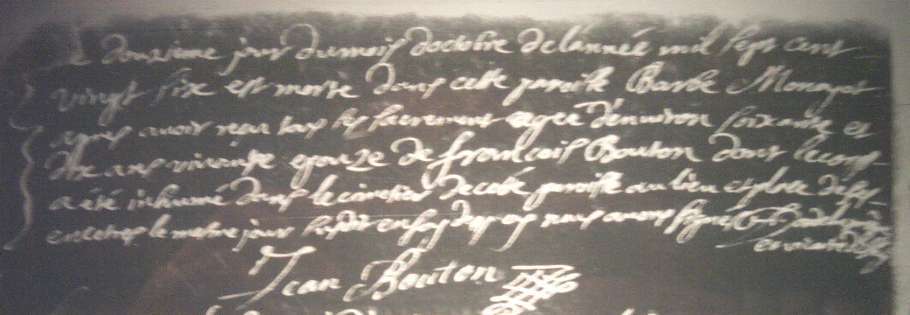 Le douzieme jour du mois doctobre de lannée mil sept cent
vingt six est morte dans cette paroisse Barbe Monayot
apres avoir reçu tous les sacrements agee denviron soixante et
dix ans vivante epouze de francois Bouton dont le corps
a été inhumé dans le cimetier de cette paroisse au lieu et place de ses
ancetres le mettre jour en foy de quoy nous avons signé
Jean Bouton